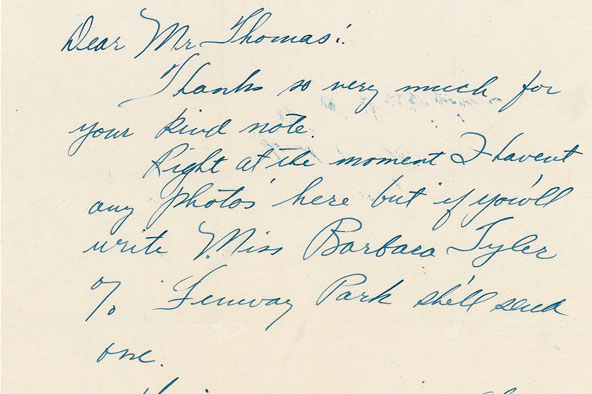 Dear Mr. Thomas:
Thanks so very much for
your kind note.
Right at the moment I havent
any photos here but if you'll
write Miss Barbara Tyler
℅ Fenway Park she'll send
one.